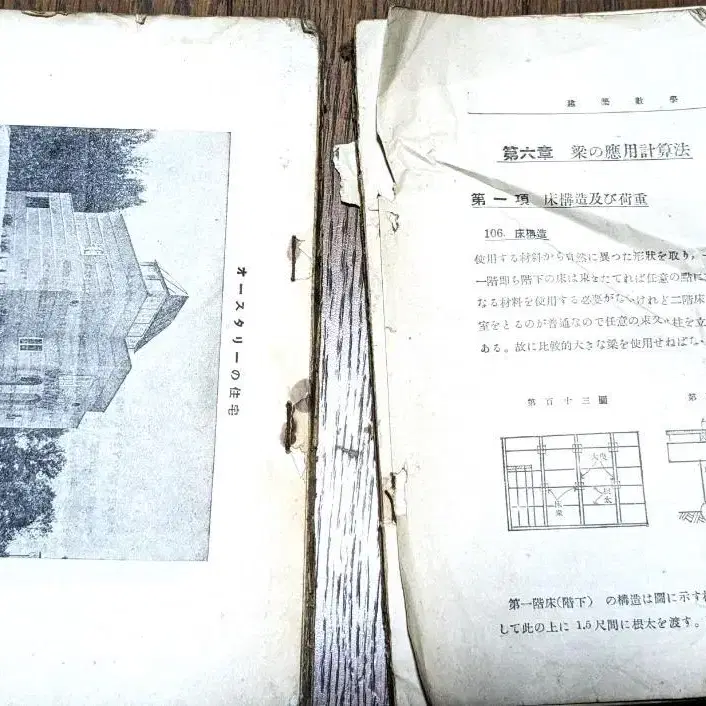 オースタリーの住宅
建築數學
第六章 梁の應用計算法
第一項 床構造及び荷重
106. 床構造
使用する材料から自然に異つた形狀を取り、
一階卽ち階下の床は束をたてれば任意の點に
なる材料を使用する必要がないけれど二階床
室をとるのが普通なので任意の束又は柱を立
ある。故に比較的大きな梁を使用せねばな
第百十三圖
第
大引
根太
床梁
第一階床(階下) の構造は圖に示す
して此の上に 1.5 尺間に根太を渡す。